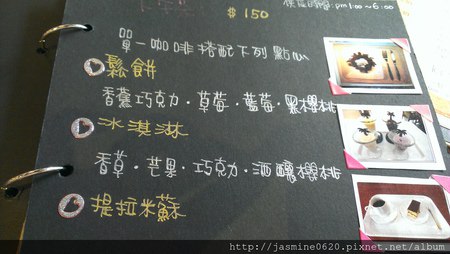 $150
pm1:00~6:00
單一咖啡搭配下列點心
鬆餅
香蕉巧克力·草莓·藍莓·黑櫻桃
冰淇淋
香草·芒果·巧克力·酒釀櫻桃
提拉米蘇
http://jasmine0620.pixnet.net/album